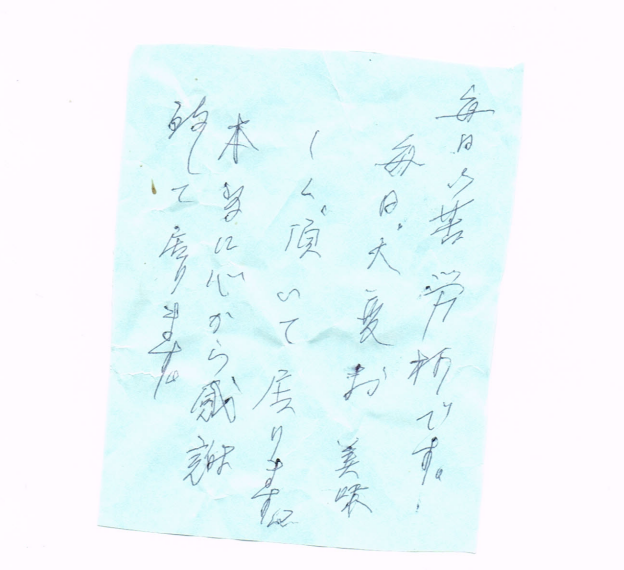 毎日ご苦労様です。!
毎日、大変お美味
しく、頂いて居ります。
本当に心から感謝
致して居ります。